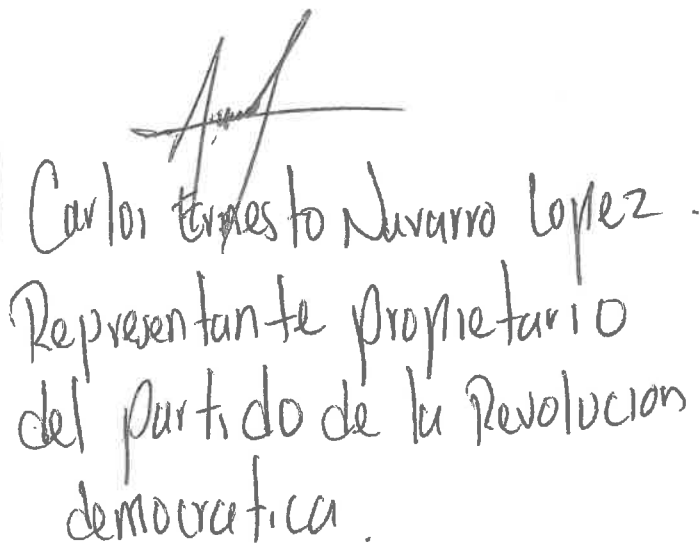 Carlos Ernesto Navarro Lopez.
Representante propietario
del partido de la Revolucion
democratica.